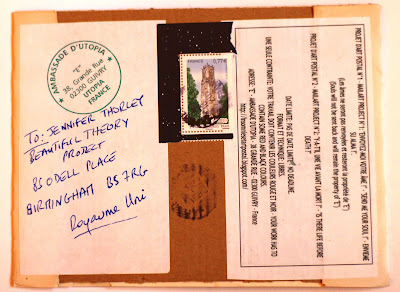 AMBASSADE D'UTOPIA
"E"
38, Grande Rue
02300 GUIVRY
UTOPIA
FRANCE
TO: JENNIFER THORLEY
BEAUTIFUL THEORY
PROJECT
85 ODELL PLACE
BIRMINGHAM B5 7RG
Royaume Uni
FRANCE 0,77€
PROJET D'ART POSTAL N°1 - MAILART PROJECT N°1 : "ENVOYEZ MOI VOTRE AME !" - "SEND ME YOUR SOUL !" - ENVIOME
SU ALMA"
(Les âmes ne seront pas renvoyées et resteront la propriété de "E")
(Souls will not be sent back and will remain the property of "E")
PROJET D'ART POSTAL N°2 - MAILART PROJECT N°2 : "Y-A-T-IL UNE VIE AVANT LA MORT ?" - "IS THERE LIFE BEFORE
DEATH ?"
DATE LIMITE : PAS DE DATE LIMITE / NO DEADLINE.
FORMAT ET TECHNIQUE : LIBRES
UNE SEULE CONTRAINTE : VOTRE TRAVAIL DOIT CONTENIR LES COULEURS ROUGE ET NOIR - YOUR WORK HAS TO
CONTAIN SOME RED AND BLACK COLOURS.
ADRESSE : "E" - AMBASSADE D'UTOPIA - 38 GRANDE RUE - 02300 GUIVRY - France